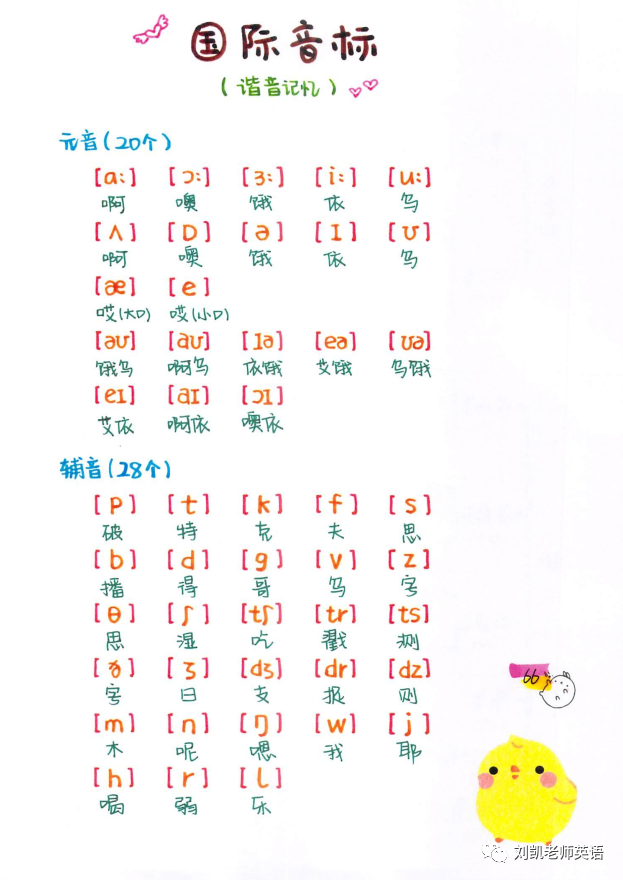 国际音标
(谐音记忆)
元音(20个)
[ɑ:] [ɔ:] [ɜ:] [i:] [u:]
啊 噢 饿 依 乌
[ʌ] [ɒ] [ə] [ɪ] [ʊ]
啊 噢 饿 依 乌
[æ] [e]
哎(大口) 哎(小口)
[əʊ] [aʊ] [ɪə] [eə] [ʊə]
饿乌 啊乌 依饿 艾饿 乌饿
[eɪ] [aɪ] [ɔɪ]
艾依 啊依 噢依
辅音(28个)
[p] [t] [k] [f] [s]
破 特 克 夫 思
[b] [d] [g] [v] [z]
播 得 哥 乌 字
[θ] [ʃ] [tʃ] [tr] [ts]
思 湿 吃 戳 测
[ð] [ʒ] [dʒ] [dr] [dz]
字 日 支 捉 则
[m] [n] [ŋ] [w] [j]
木 呢 嗯 我 耶
[h] [r] [l]
喝 弱 乐
66
刘凯老师英语